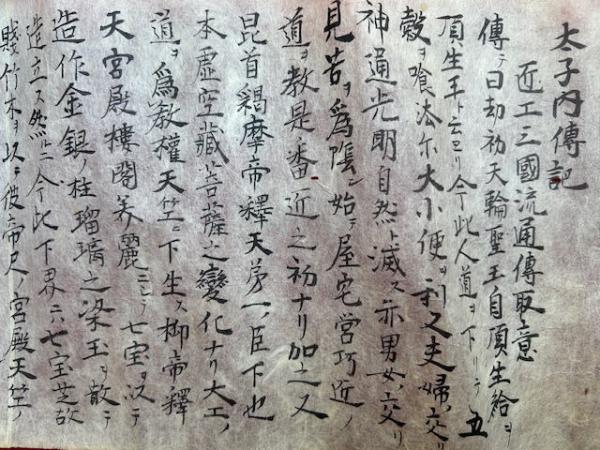 太子内傳記
近工三國流通傳取意
傳ヲ曰劫初天輪聖王自頂生給ヲ
頂生王ト云ヘリ今此人道ヲ下リテ五
穀ヲ喰 尓大小便ヲ利又夫婦ノ交リ
神通光明自然ト滅ス亦男女ノ交リ
見苦ヲ為陰ン始テ屋宅営巧近ノ
道ヲ教是番近之初ナリ加之又
昆首羯摩帝釋天第一ノ臣下也
本虚空藏菩薩之變化ナリ大工ノ
道ヲ為教權天竺ニ下生ス 帝釋
天宮殿樓閣美麗ニシテ七宝ヲ以テ
造作金銀ノ柱瑠璃之梁玉ヲ敷テ
造立ス然ルニ今此下界六七宝芝故
賤竹木ヲ以テ彼帝尺ノ宮殿天竺ノ